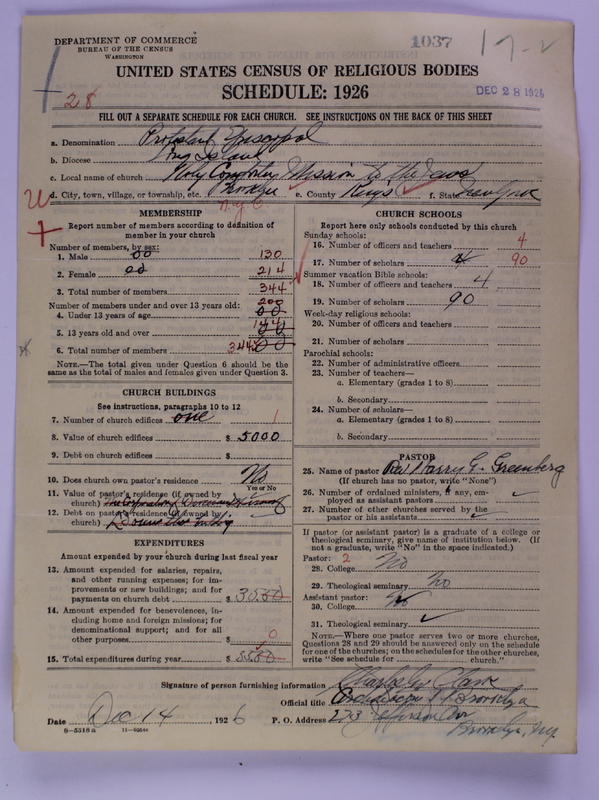 DEPARTMENT OF COMMERCE
BUREAU OF THE CENSUS
WASHINGTON
1037
17-2
UNITED STATES CENSUS OF RELIGIOUS BODIES
SCHEDULE: 1926
DEC 28 1926
28
FILL OUT A SEPARATE SCHEDULE FOR EACH CHURCH. SEE INSTRUCTIONS ON THE BACK OF THIS SHEET
a. Denomination Protestant Episcopal
b. Diocese Long Island
c. Local name of church Holy Comforter Mission to the Jews
d. City, town, village, or township, etc. Brooklyn e. County Kings f. State New York
N.Y.C.
MEMBERSHIP
Report number of members according to definition of member in your church
Number of members, by sex:
1. Male 00 130
2. Female 00 214
3. Total number of members 344
Number of members under and over 13 years old:
4. Under 13 years of age 200 00
5. 13 years old and over 144 00
6. Total number of members 344 00
NOTE.—The total given under Question 6 should be the same as the total of males and females given under Question 3.
CHURCH BUILDINGS
See instructions, paragraphs 10 to 12
7. Number of church edifices one 1
8. Value of church edifices $ 5000
9. Debt on church edifices $
10. Does church own pastor's residence? No
Yes or No
11. Value of pastor's residence (if owned by church)
12. Debt on pastor's residence (if owned by church)
EXPENDITURES
Amount expended by your church during last fiscal year
13. Amount expended for salaries, repairs, and other running expenses; for improvements or new buildings; and for payments on church debt $
14. Amount expended for benevolences, including home and foreign missions; for denominational support; and for all other purposes $ 0
15. Total expenditures during year $
CHURCH SCHOOLS
Report here only schools conducted by this church
Sunday schools:
16. Number of officers and teachers 4
17. Number of scholars 4 90
Summer vacation Bible schools:
18. Number of officers and teachers 4
19. Number of scholars 90
Week-day religious schools:
20. Number of officers and teachers
21. Number of scholars
Parochial schools:
22. Number of administrative officers
23. Number of teachers—
a. Elementary (grades 1 to 8)
b. Secondary
24. Number of scholars—
a. Elementary (grades 1 to 8)
b. Secondary
PASTOR
25. Name of pastor Rev Harry G. Greenberg
(If church has no pastor, write "None")
26. Number of ordained ministers, if any, employed as assistant pastors
27. Number of other churches served by the pastor or his assistants
If pastor (or assistant pastor) is a graduate of a college or theological seminary, give name of institution below. (If not a graduate, write "No" in the space indicated.)
Pastor: 2
28. College No
29. Theological seminary No
Assistant pastor:
30. College No
31. Theological seminary
NOTE.—Where one pastor serves two or more churches, Questions 28 and 29 should be answered only on the schedule for one of the churches; on the schedules for the other churches, write "See schedule for church."
Signature of person furnishing information Charles G. Clark
Official title Archdeacon of Brooklyn
Date Dec 14, 1926 P. O. Address 273 Jefferson Ave
Brooklyn, N.Y.
8-5518a 11-